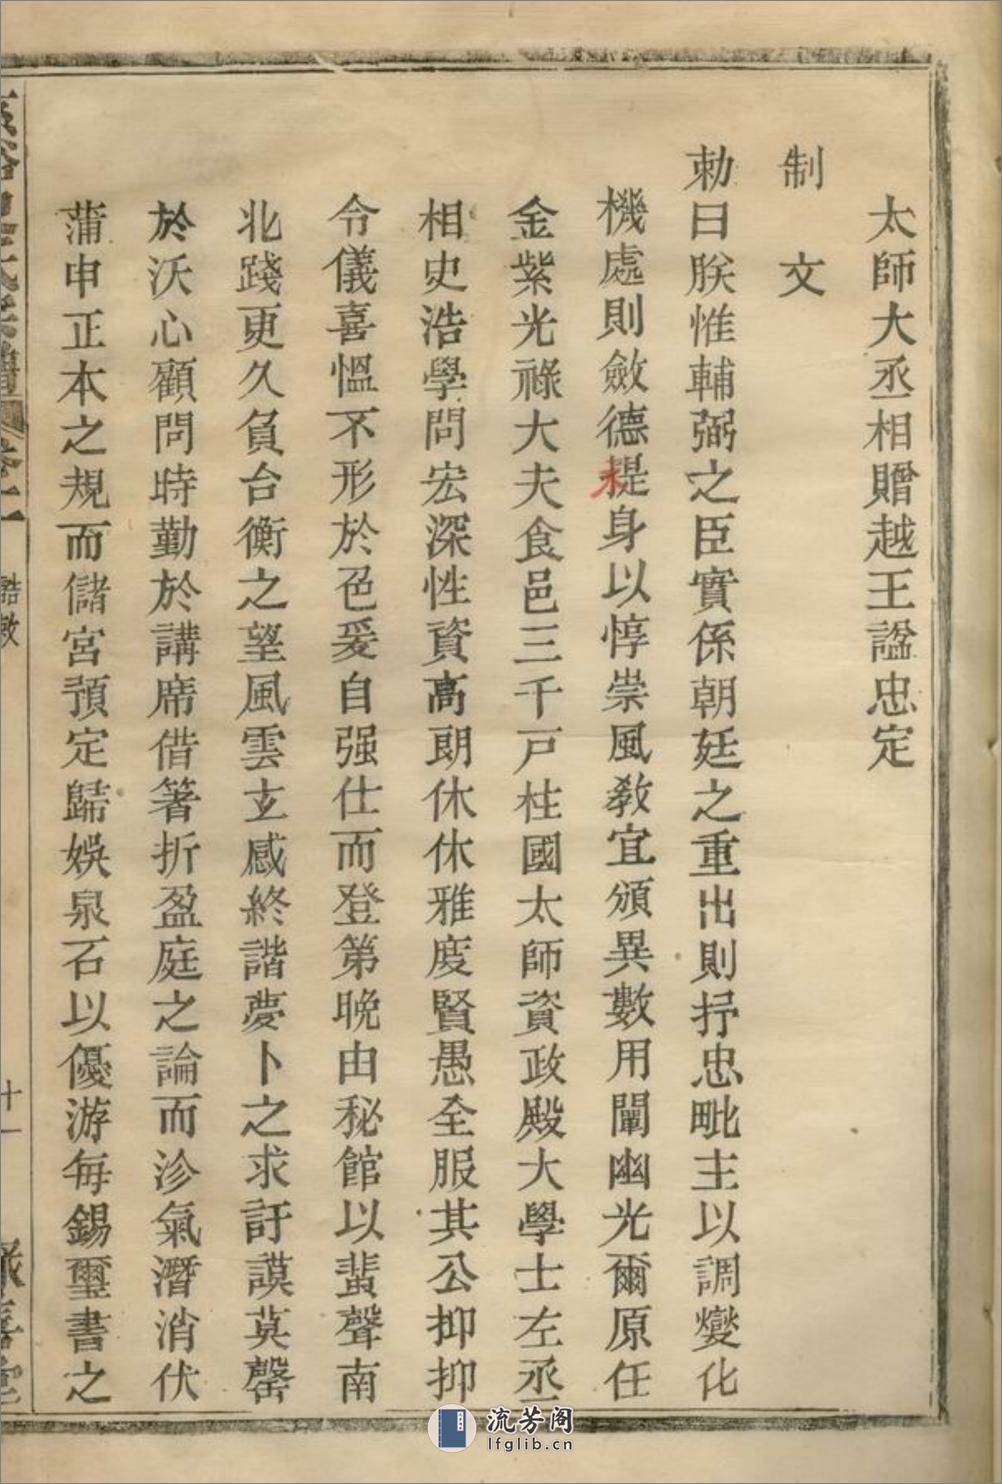 太師大丞相贈越王諡忠定
制文
勅曰朕惟輔弼之臣實係朝廷之重出則抒忠毗主以調燮化
機處則斂德提身以惇崇風教宜頒異數用闡幽光爾原任
未
金紫光祿大夫食邑三千戸柱國太師資政殿大學士左丞
相史浩學問宏深性資高朗休休雅度賢愚全服其公抑抑
令儀喜慍不形於色爰自强仕而登第晚由秘館以蜚聲南
北踐更久負台衡之望風雲玄感終諧夢卜之求訏謨莫罄
於沃心顧問時勤於講席借箸折盈庭之論而沴氣潛消伏
蒲申正本之規而儲宮預定歸娛泉石以優游每錫璽書之
卷一
誥敕
十一
流芳阁
lfglib.cn